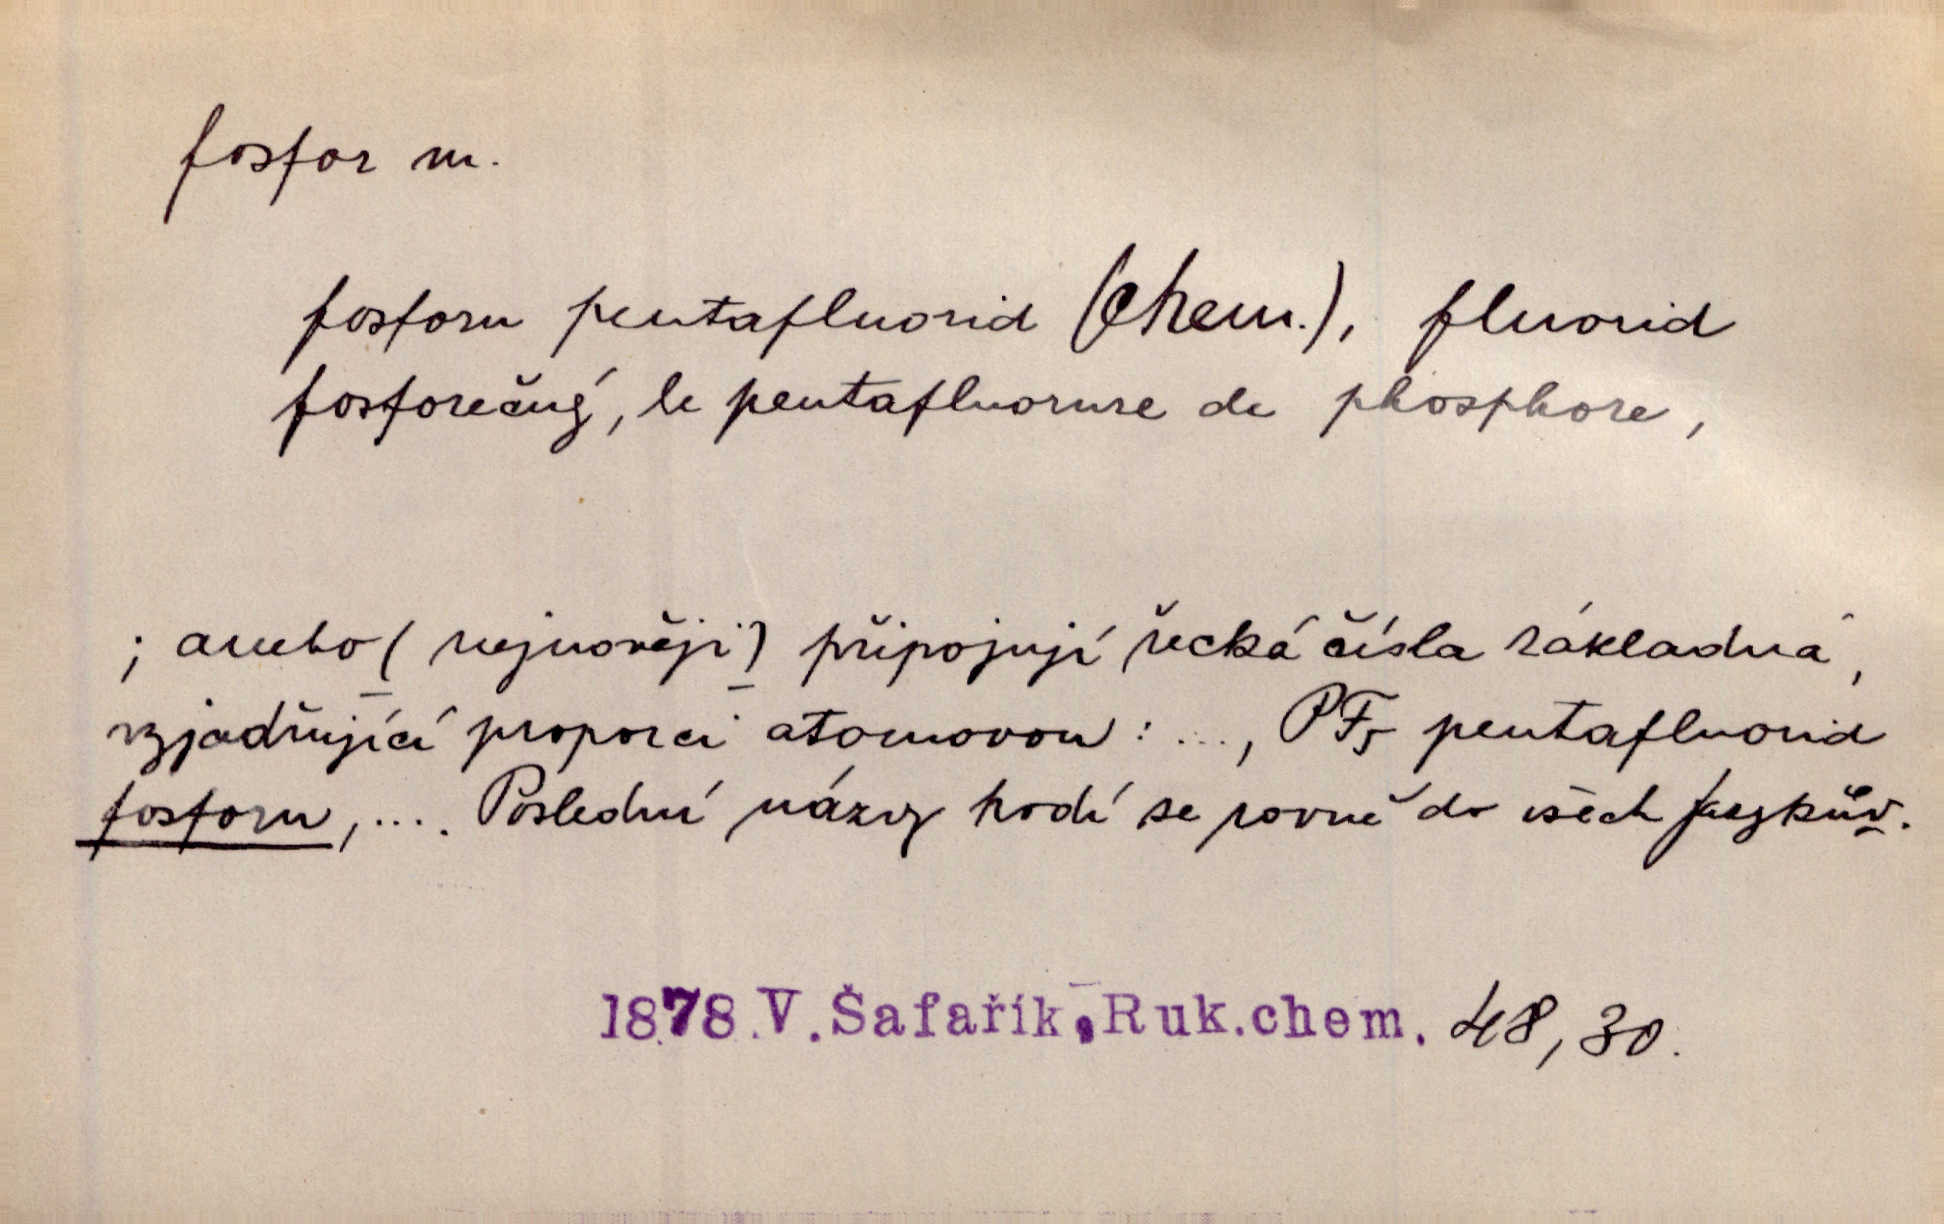 fosfor m.
fosforu pentafluorid (chem.), fluorid
fosforečný, le pentafluorure de phosphore,
; aneho ( nejnověji) připojují řecká čísla základná,
vyjadřující proporci atomovou : ..., PF5 pentafluorid
fosforu, .... Poslední názvy hodí se rovně do všech jazykův.
1878 V. Šafařík, Ruk.chem. 48, 30.